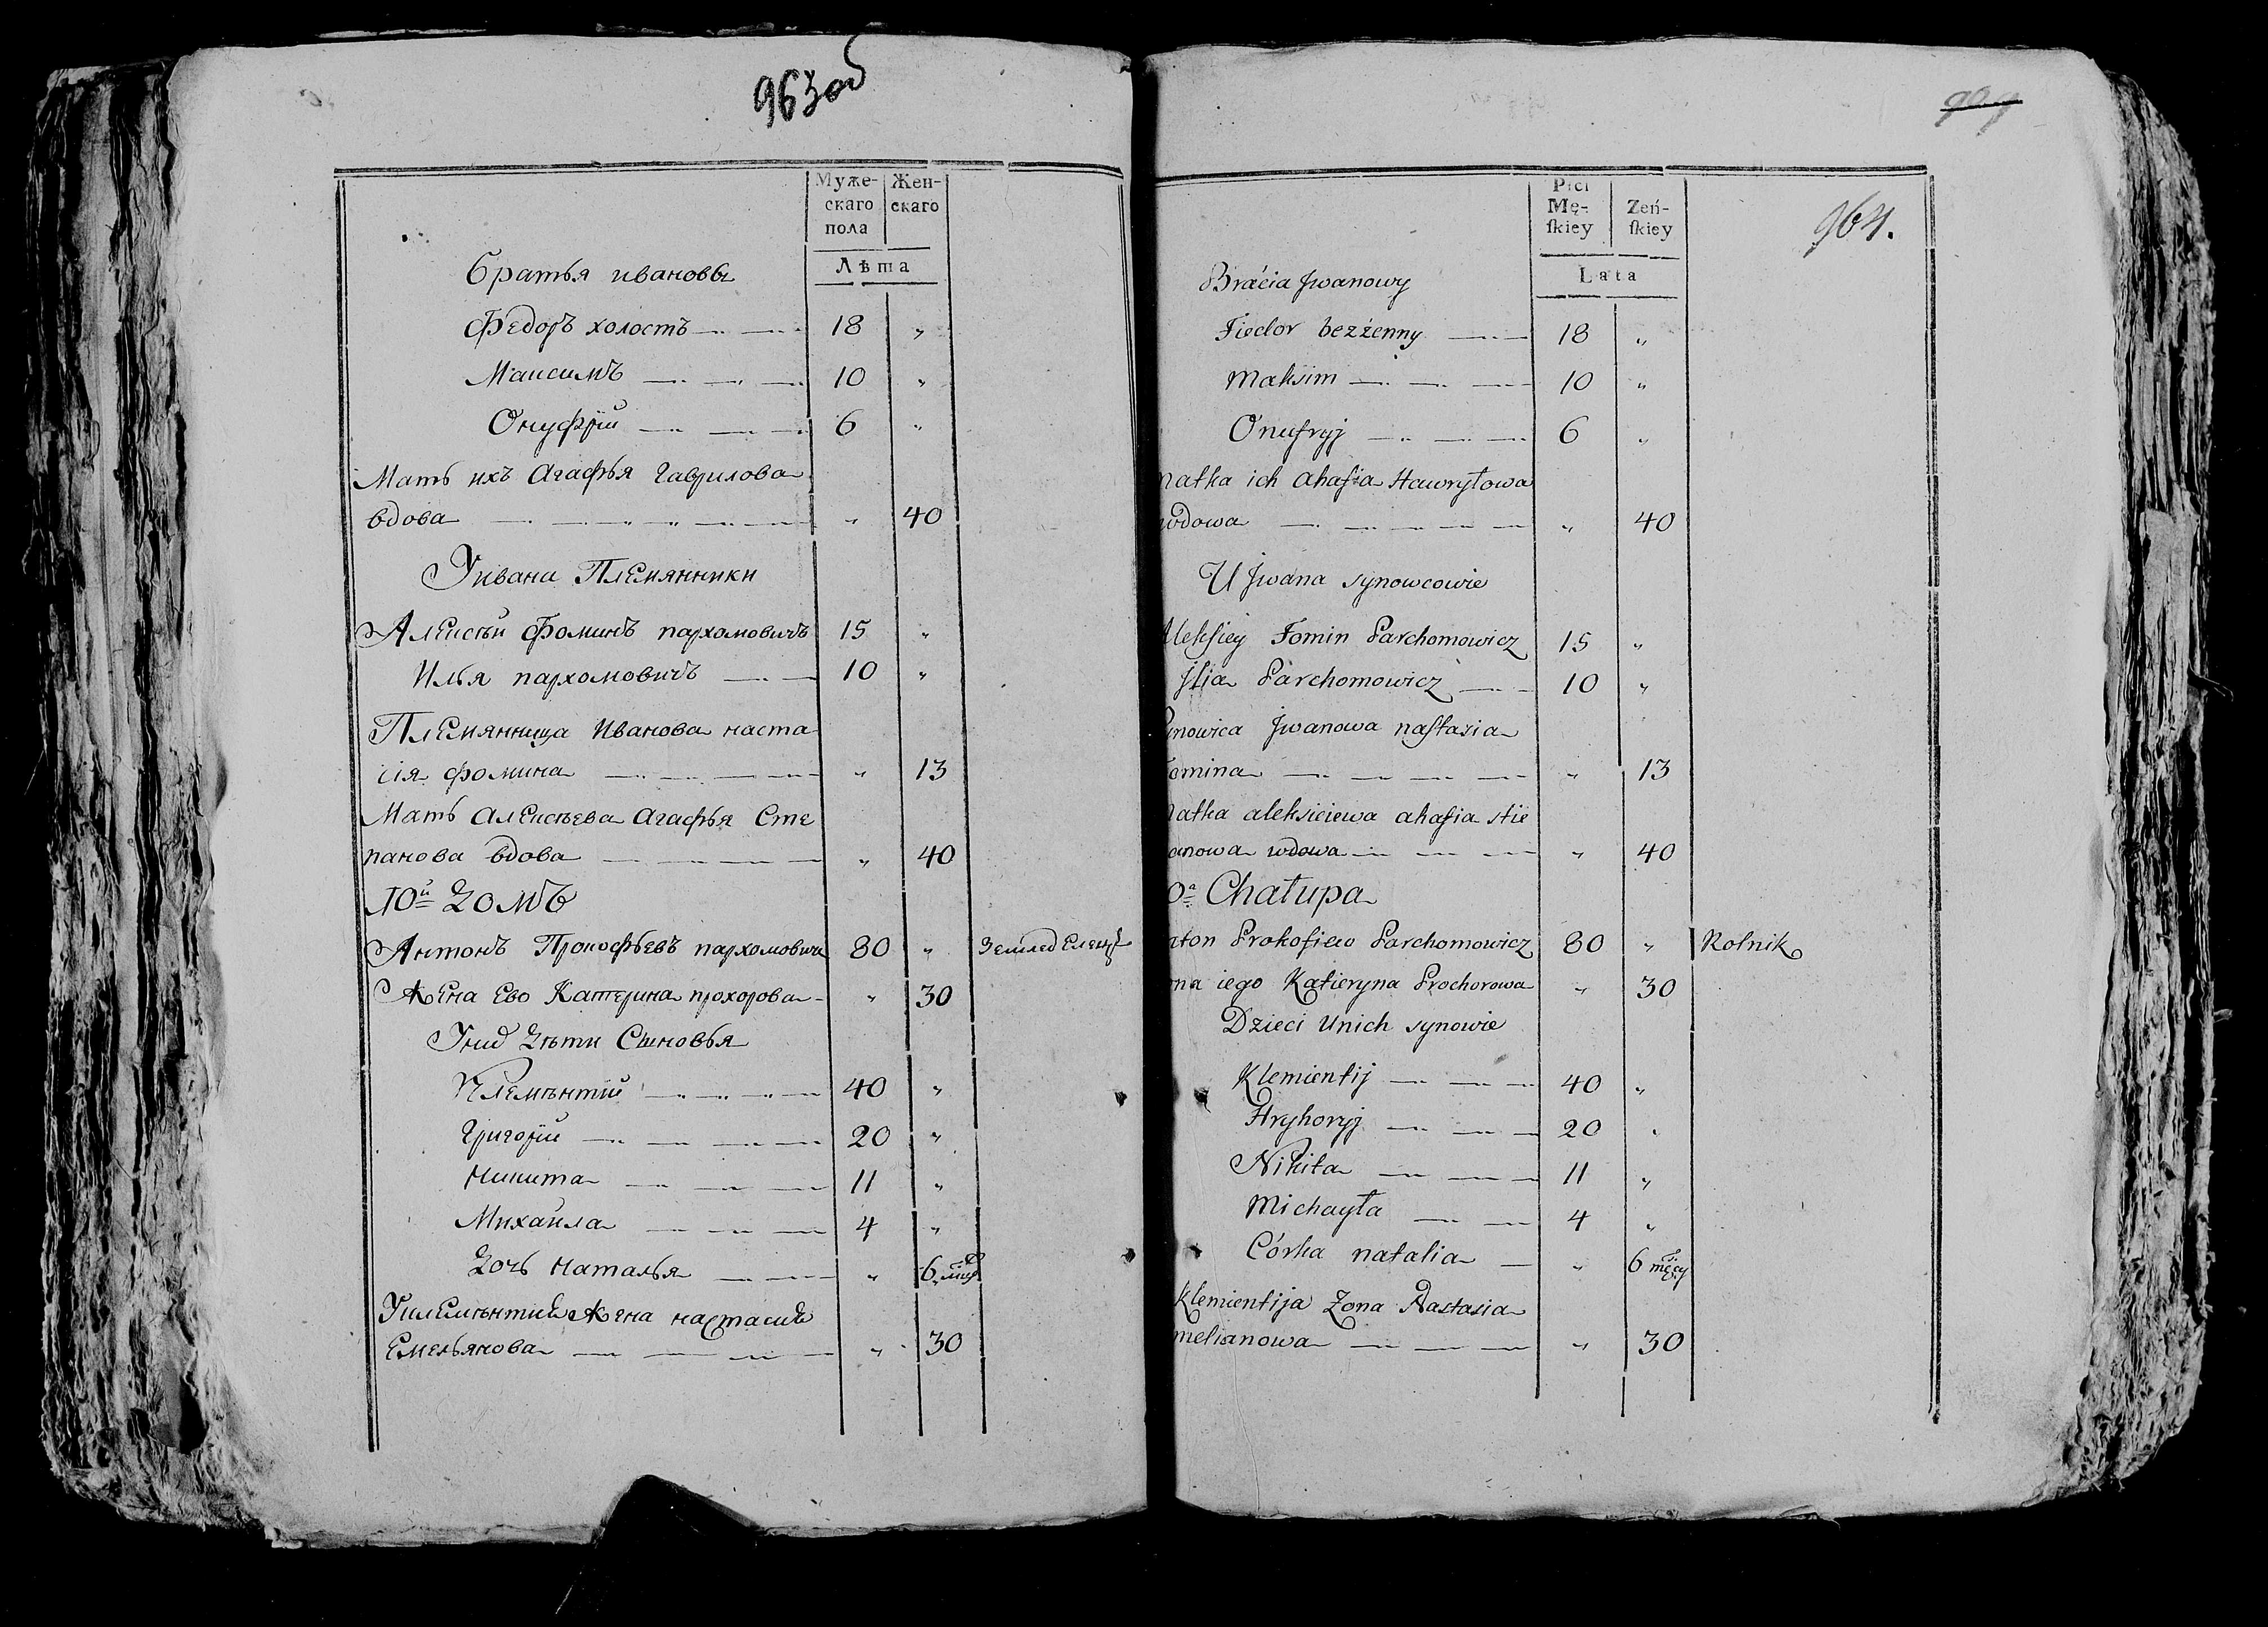 963об
Муже- Жен-
скаго скаго
пола
Лѣта
Братья ивановы
Федоръ холостъ 18 "
Максимъ 10 "
Онуфрій 6 "
Мать ихъ Агафья Гаврилова
вдова " 40
Уивана Племянники
Алексѣй Фоминъ пархомовичъ 15 "
Илья пархомовичъ 10 "
Племянница Иванова наста
сія фомина " 13
Мать алексѣева агафья Сте
панова вдова " 40
10й Домъ
Антонъ Прокофьевъ пархомовичъ 80 "
Жена Ево Катерина прохорова " 30
Уних Дѣти Сыновья
Клемѣнтій 40 "
Григорій 20 "
Никита 11 "
Михайла 4 "
Дочь Наталья " 6 мцъ
Уклемѣнтия Жена настасия
Емельянова " 30
964.
Płci
Mę- Zeń-
ſkiey ſkiey
Lata
Brácia Jwanowy
Fiedor bezżenny 18 "
Maksim 10 "
Onufryj 6 "
matka ich ahafia Hawryłowa
wdowa " 40
U Jwana synowcowie
Alekſiey Fomin Parchomowicz 15 "
Jlia Parchomowicz 10 "
nowica Jwanowa naſtasia
omina " 13
atka aleksieiewa ahafia stie
anowa wdowa " 40
0a Chałupa
ton Prokofiew Parchomowicz 80 " Rolnik
na iego Katieryna Prochorowa " 30
Dzieci Unich synowie
Klemientij 40 "
Hryhoryj 20 "
Nikita 11 "
Michayła 4 "
Córka natalia " 6 mięcy
Klemientija Zona Nastasia
melianowa " 30